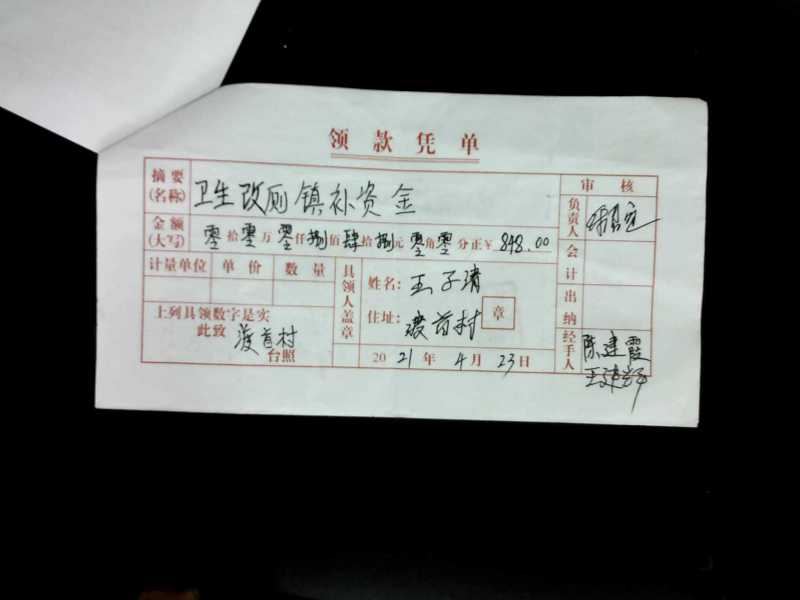 领款凭单
摘要(名称) 卫生改厕镇补资金
审核
金额(大写) 零拾零万零仟捌佰肆拾捌元零角零分正¥ 848.00
负责人
计量单位 单价 数量
具领人盖章
姓名: 王子清
住址: 渡首村
章
会计
出纳
上列具领数字是实
此致 渡首村
台照
2021年4月23日
经手人 陈建霞